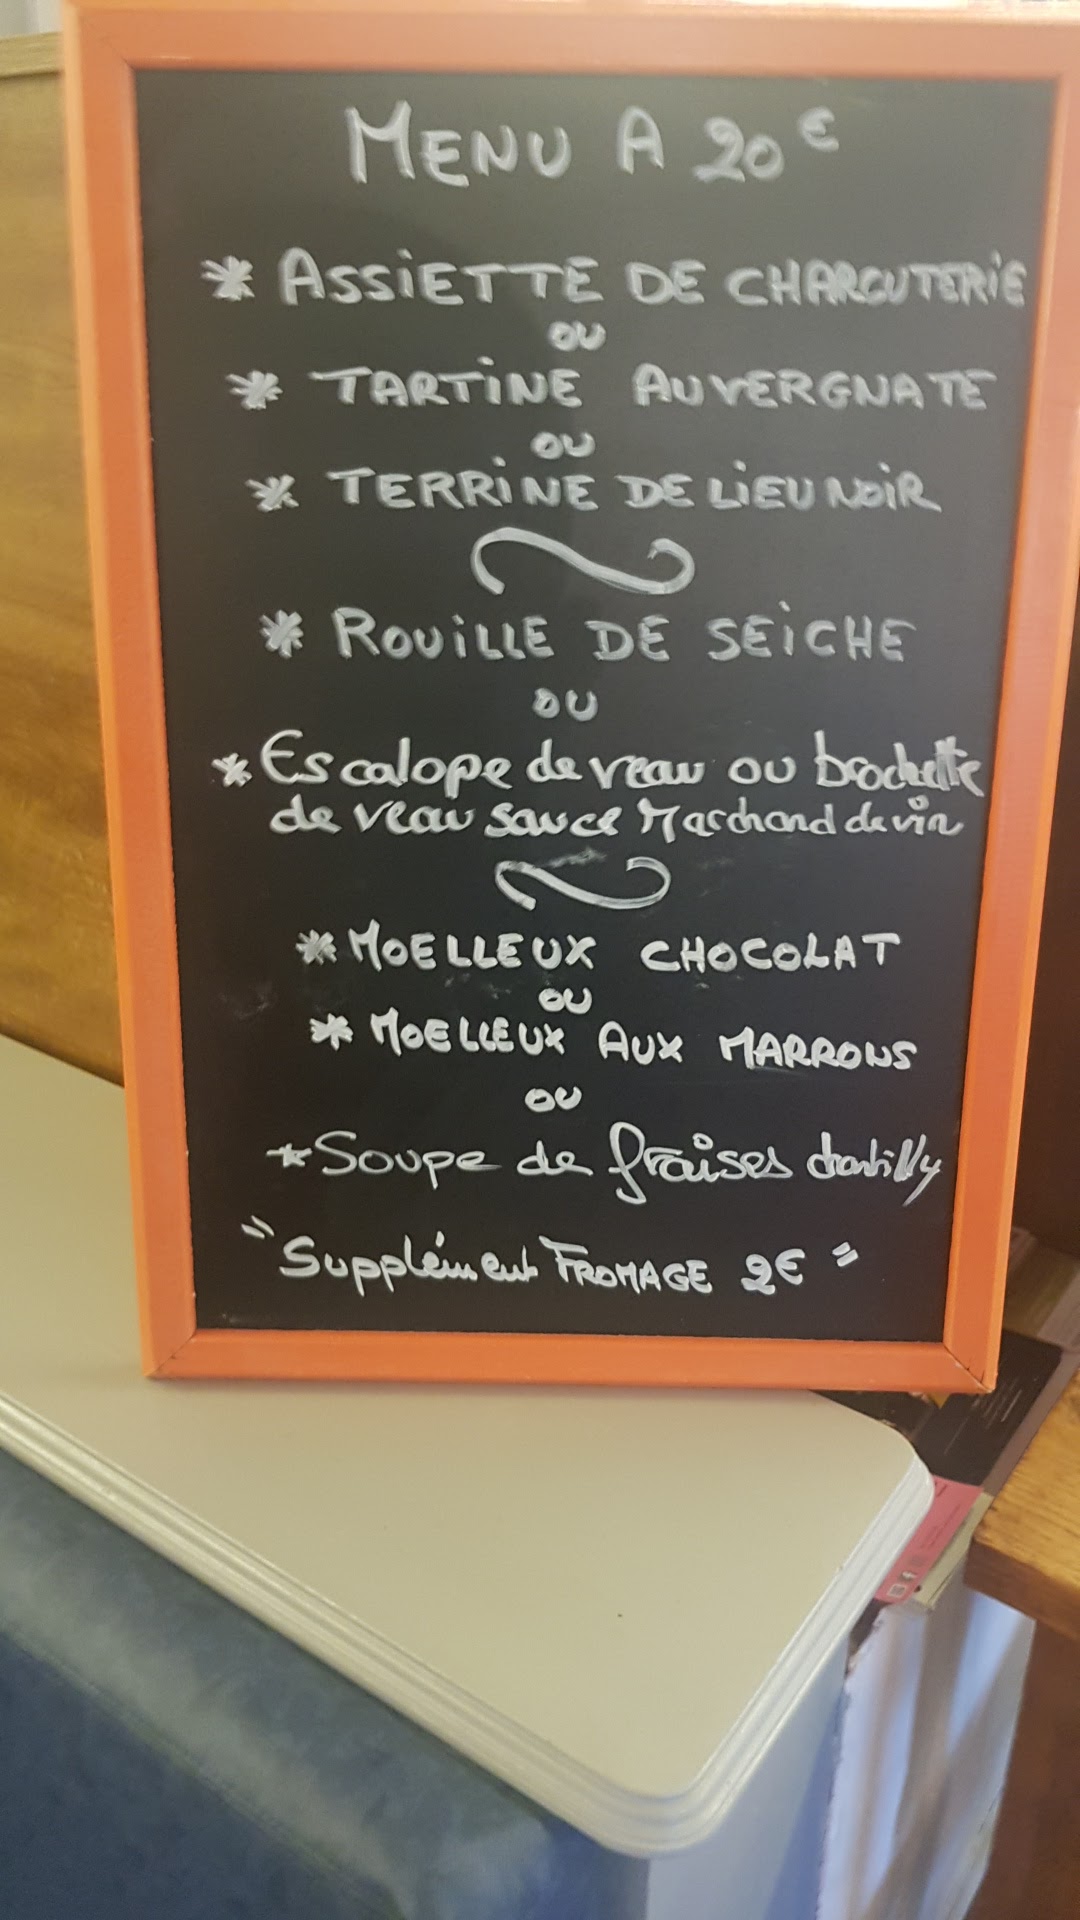 MENU A 20€
* ASSIETTE DE CHARCUTERIE
OU
* TARTINE AUVERGNATE
OU
* TERRINE DE LIEU NOIR
* ROUILLE DE SEICHE
OU
* Escalope de veau ou brochette
de veau sauce Marchand de vin
* MOELLEUX CHOCOLAT
OU
* MOELLEUX AUX MARRONS
OU
* Soupe de fraises chantilly
"Supplément FROMAGE 2€"